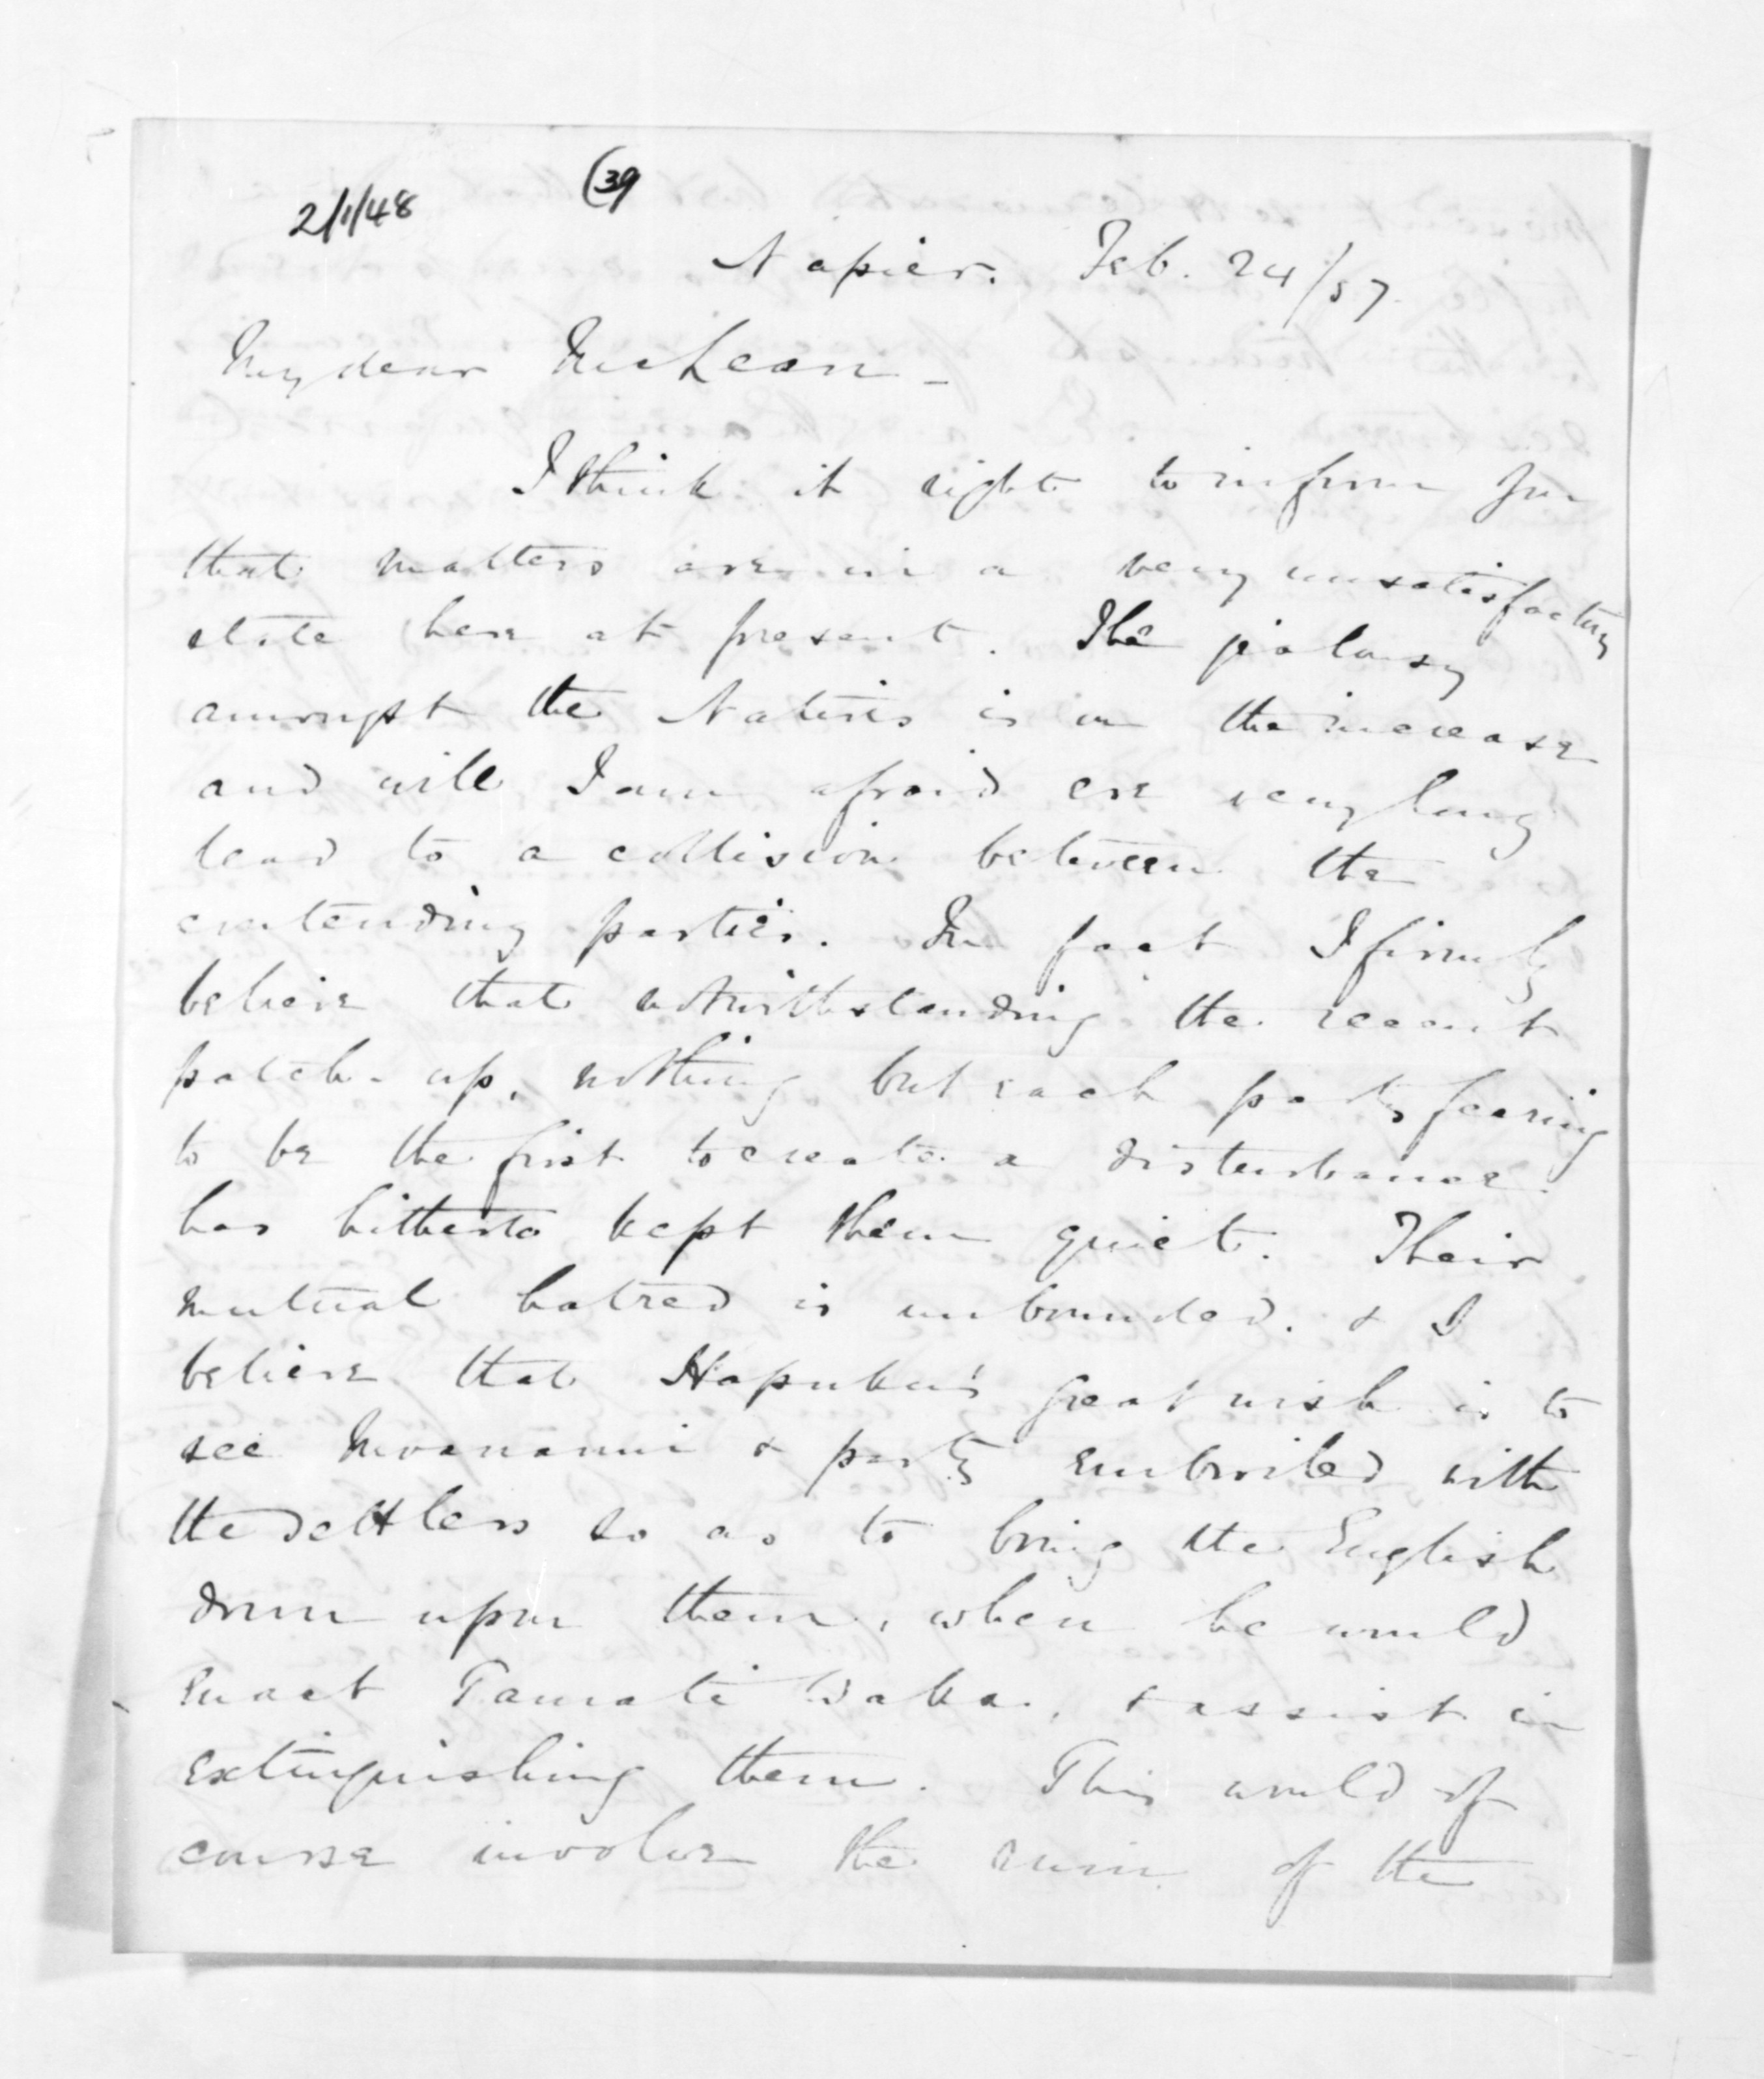 2/1/48
(39
Napier. Feb. 24/57.
My dear McLean -
I think it right to inform you
that matters are in a very unsatisfactory
state here at present. The jealousy
amongst the Natives is on the increase
and will I am afraid ere very long
lead to a collision between the
contending parties. In fact I firmly
believe that notwithstanding the recent
patch-up, nothing but each party fearing
to be the first to create a disturbance
has hitherto kept them quiet. Their
mutual hatred is unbounded. & I
believe that Hapuku's great wish is to
see Moananui & party embroiled with
the settlers so as to bring the English
down upon them, when he would
enact Tamati Waka, & assist in
extinguishing them. This would of
course involve the ruin of the